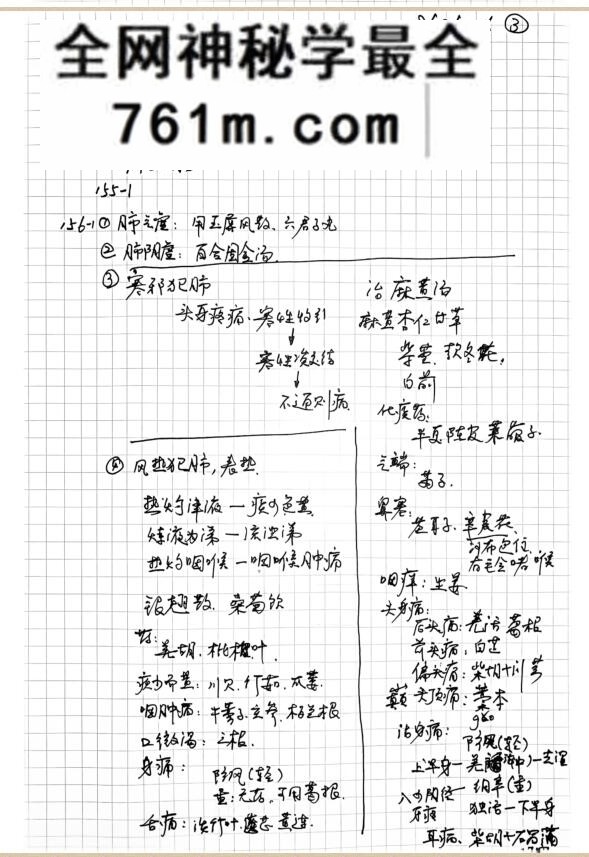 ③
全网神秘学最全
761m.com
155-1
156-1① 肺气虚：用玉屏风散、六君子丸
② 肺阴虚：百合固金汤
③ 寒邪犯肺
头身疼痛、寒性收引
↓
寒性凝结
↓
不通则痛
④ 风热犯肺，表热
热灼津液—痰少色黄
炼液为涕—浊涕
热灼咽喉—咽喉肿痛
银翘散、桑菊饮
前胡、枇杷叶
痰少而黄：川贝、竹茹、瓜蒌
咽肿痛：牛蒡子、玄参、板蓝根
口微渴：芦根
身痛：防风(轻)
重：羌活，可用葛根
舌痛：淡竹叶、黄连
治 麻黄汤
麻黄杏仁甘草
紫菀、款冬花，
白前
化痰药：
半夏陈皮莱菔子
气喘：
苏子
鼻塞：
苍耳子、辛夷花
纱布包住
否则会呛喉
咽痒：生姜
头身痛：
后头痛：羌活 葛根
前头痛：白芷
偏头痛：柴胡+川芎
巅 头顶痛：藁本
gǎo
治身痛：
防风(轻)
上半身—羌活(中)—去湿
细辛(重)
牙痛
独活—下半身
耳病、柴胡+石菖蒲